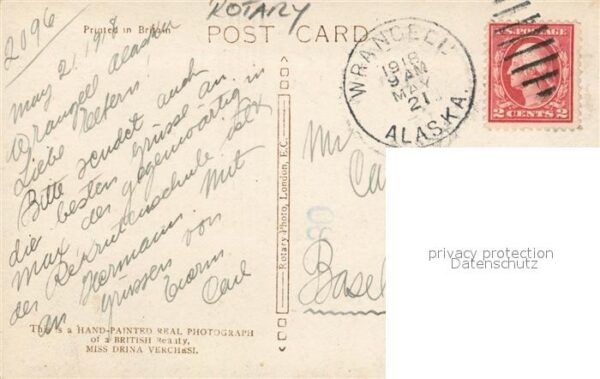 2096
ROTARY
Printed in Britain
POST CARD
WRANGELL
1918
9 AM
MAY
21
ALASKA.
U.S. POSTAGE
2 CENTS 2
May 21. 1918
Wrangell Alaska
Liebe Eltern!
Bitte sendet auch
die besten Grüsse an
Max der gegenwärtig in
der Rekrutenschule ist
an Hermann. Mit
Grüssen von
Eurem
Carl
Basel
Rotary Photo, London, E.C.
privacy protection
Datenschutz
This is a HAND-PAINTED REAL PHOTOGRAPH
of a BRITISH Beauty,
MISS DRINA VERCHESI.